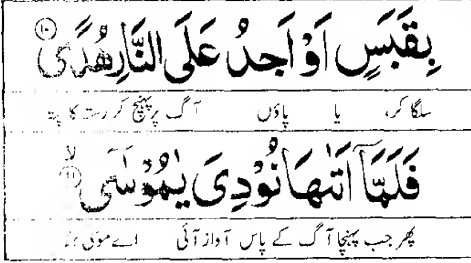 بِقَبَسٍ اَوْ اَجِدُ عَلَى النَّارِ هُدًى ۝۱۰
سلگا کر، یا پاؤں آگ پر پہنچ کر رستہ کا پتہ
فَلَمَّآ اَتٰىهَا نُوْدِیَ یٰمُوْسٰى ۝۱۱
پھر جب پہنچا آگ کے پاس آواز آئی اے موسیٰ